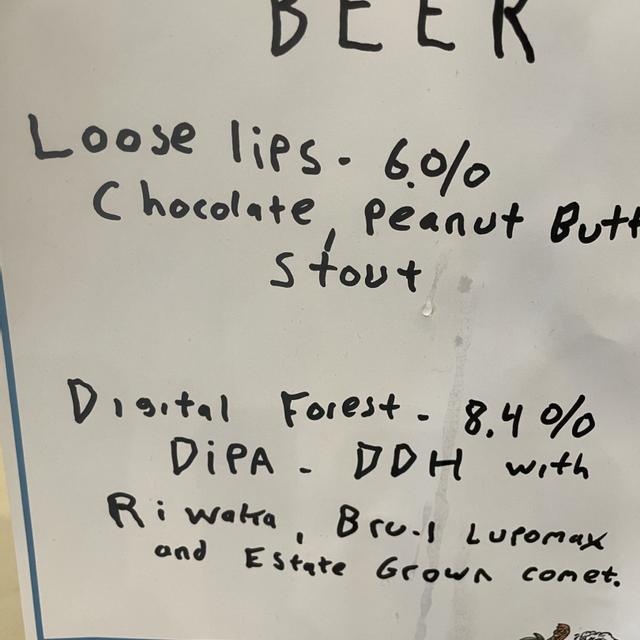 BEER
Loose lips - 6.0%
Chocolate, Peanut Butt
Stout
Digital Forest - 8.4%
DiPA - DDH with
Riwaka, Lupomax
and Estate Grown comet.